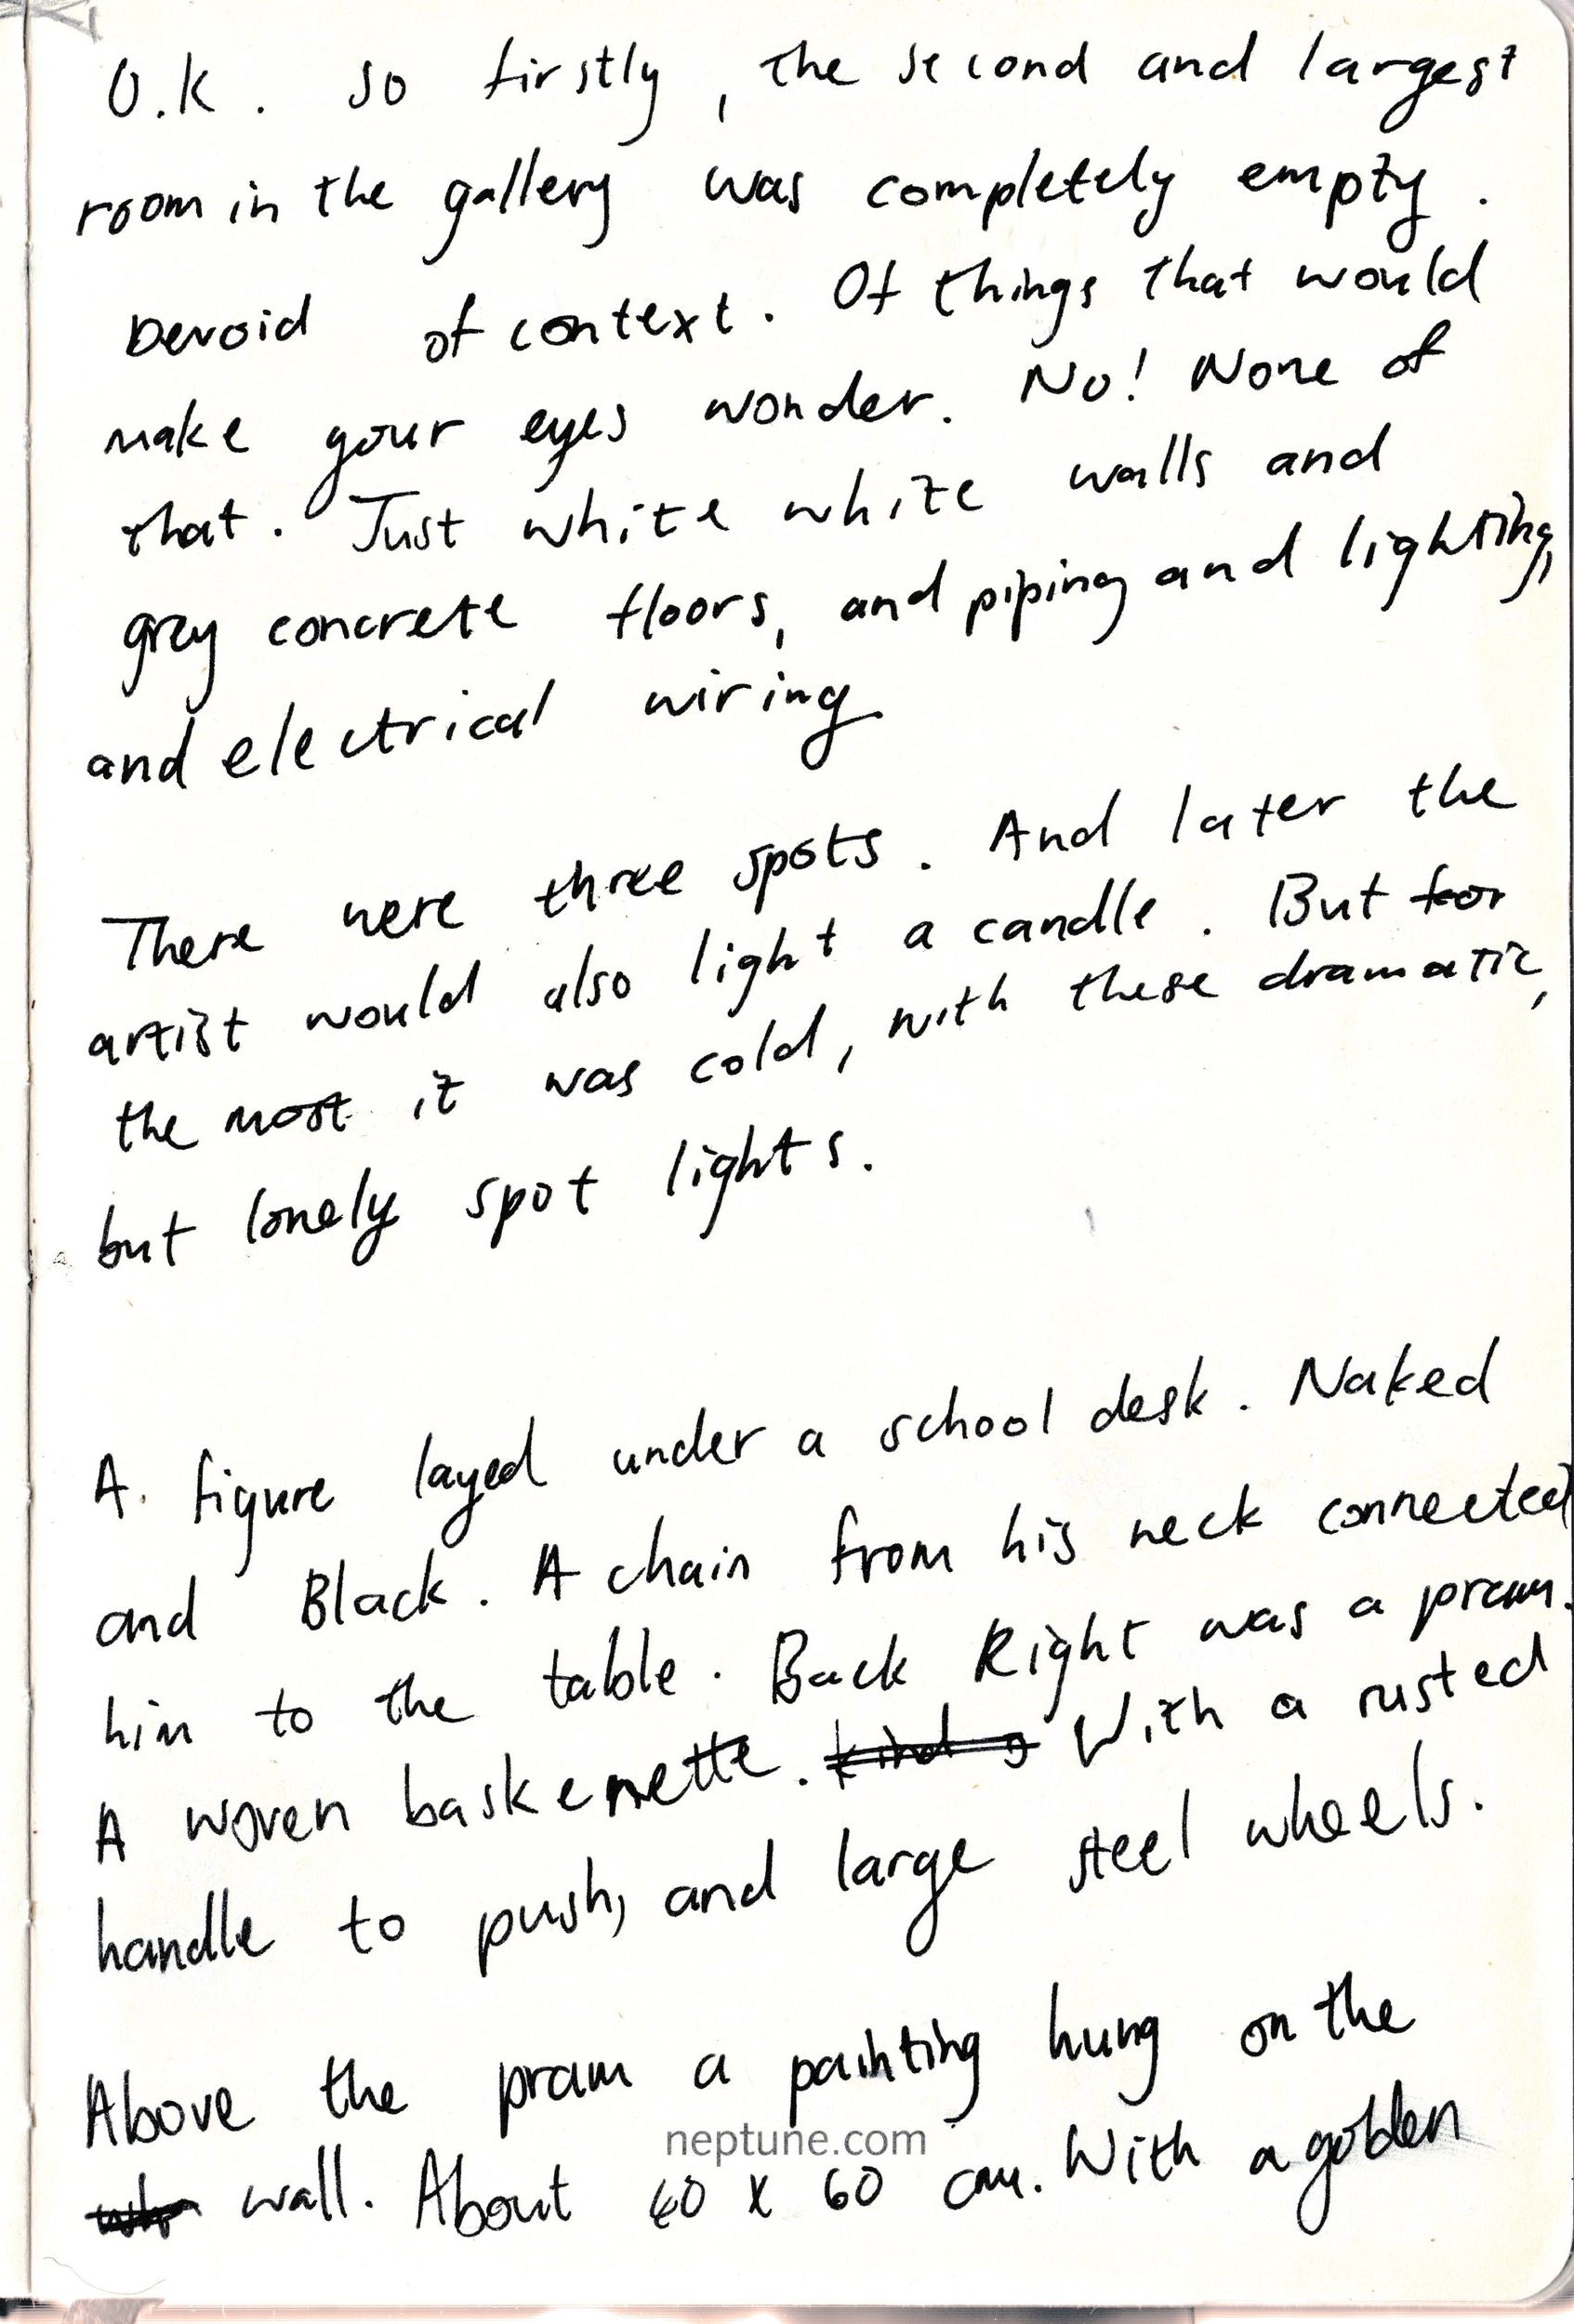 O.K. so firstly, the second and largest
room in the gallery was completely empty.
Devoid of context. Of things that would
make your eyes wonder. No! None of
that. Just white white walls and
grey concrete floors, and piping and lighting,
and electrical wiring.
There were three spots. And later the
artist would also light a candle. But for
the most it was cold, with these dramatic,
but lonely spot lights.
A. figure layed under a school desk. Naked
and Black. A chain from his neck connected
him to the table. Back Right was a pram.
A woven baskenette. With a rusted
handle to push, and large steel wheels.
Above the pram a painting hung on the
wall. About 40 x 60 cm. With a golden
neptune.com